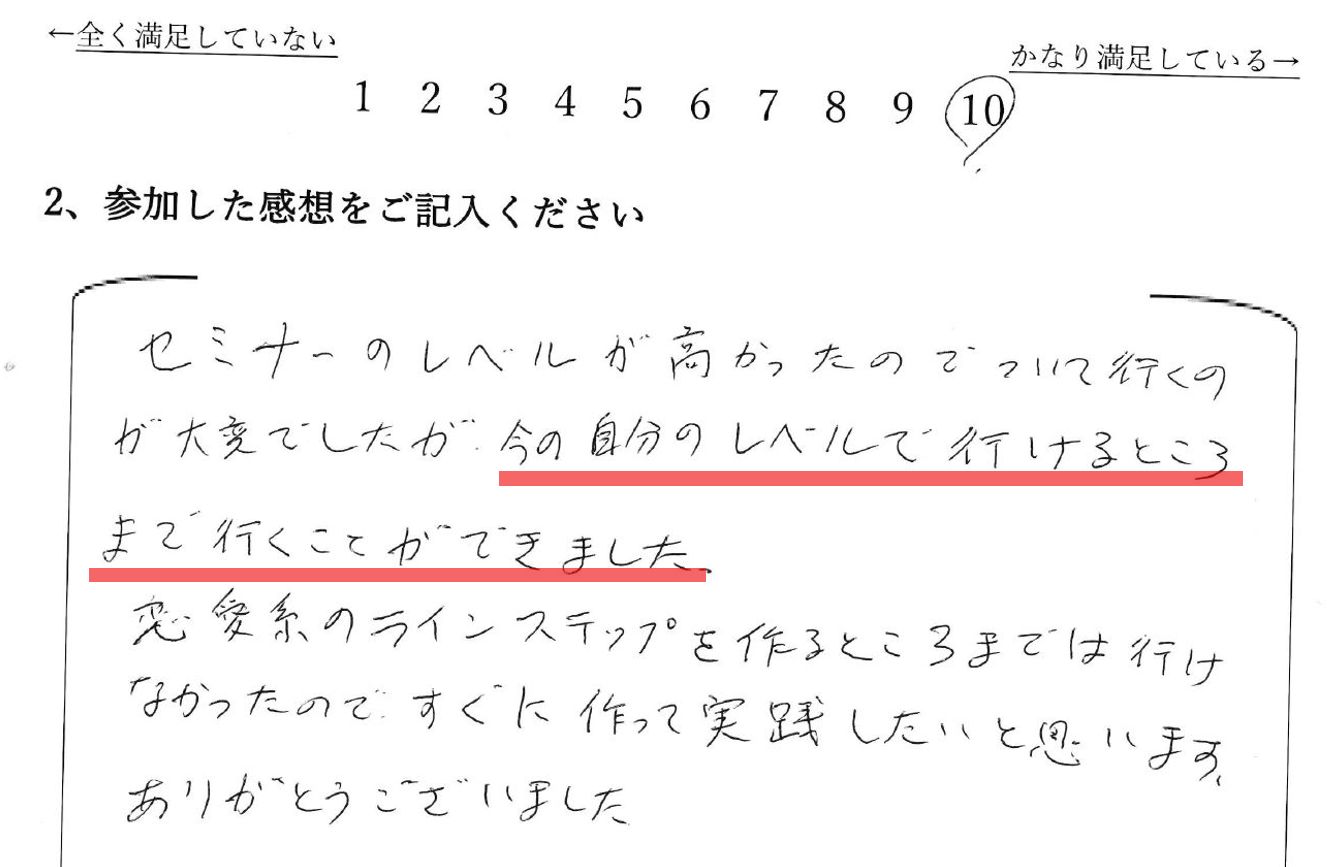 ←全く満足していない
かなり満足している→
1 2 3 4 5 6 7 8 9 10
2、参加した感想をご記入ください
セミナーのレベルが高かったのでついて行くの
が大変でしたが、今の自分のレベルで行けるところ
まで行くことができました。
恋愛系のラインステップを作るところまでは行け
なかったので、すぐに作って実践したいと思います。
ありがとうございました